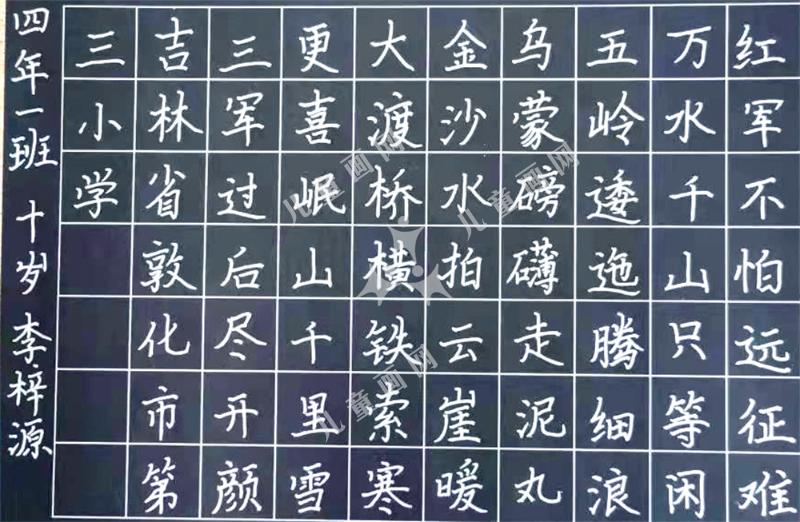 红军不怕远征难
万水千山只等闲
五岭逶迤腾细浪
乌蒙磅礴走泥丸
金沙水拍云崖暖
大渡桥横铁索寒
更喜岷山千里雪
三军过后尽开颜
吉林省敦化市第
三小学
四年一班 十岁 李梓源
儿童画网
儿童画网
儿童画网
儿童画网